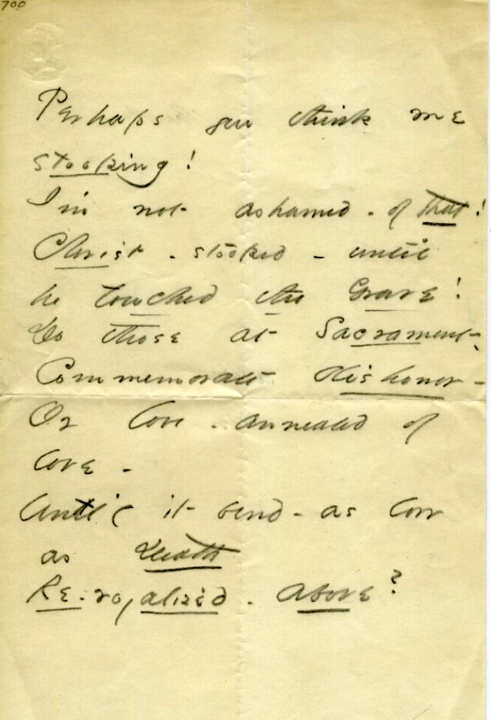 700
Perhaps you think me
stooping!
I'm not ashamed - of that!
Christ - stooped - until
he touched the Grave!
Do those at Sacrament -
Commemorate dishonor -
Or love - annealed of
love -
Until it bend - as low
as Death
Re-royalized - above?